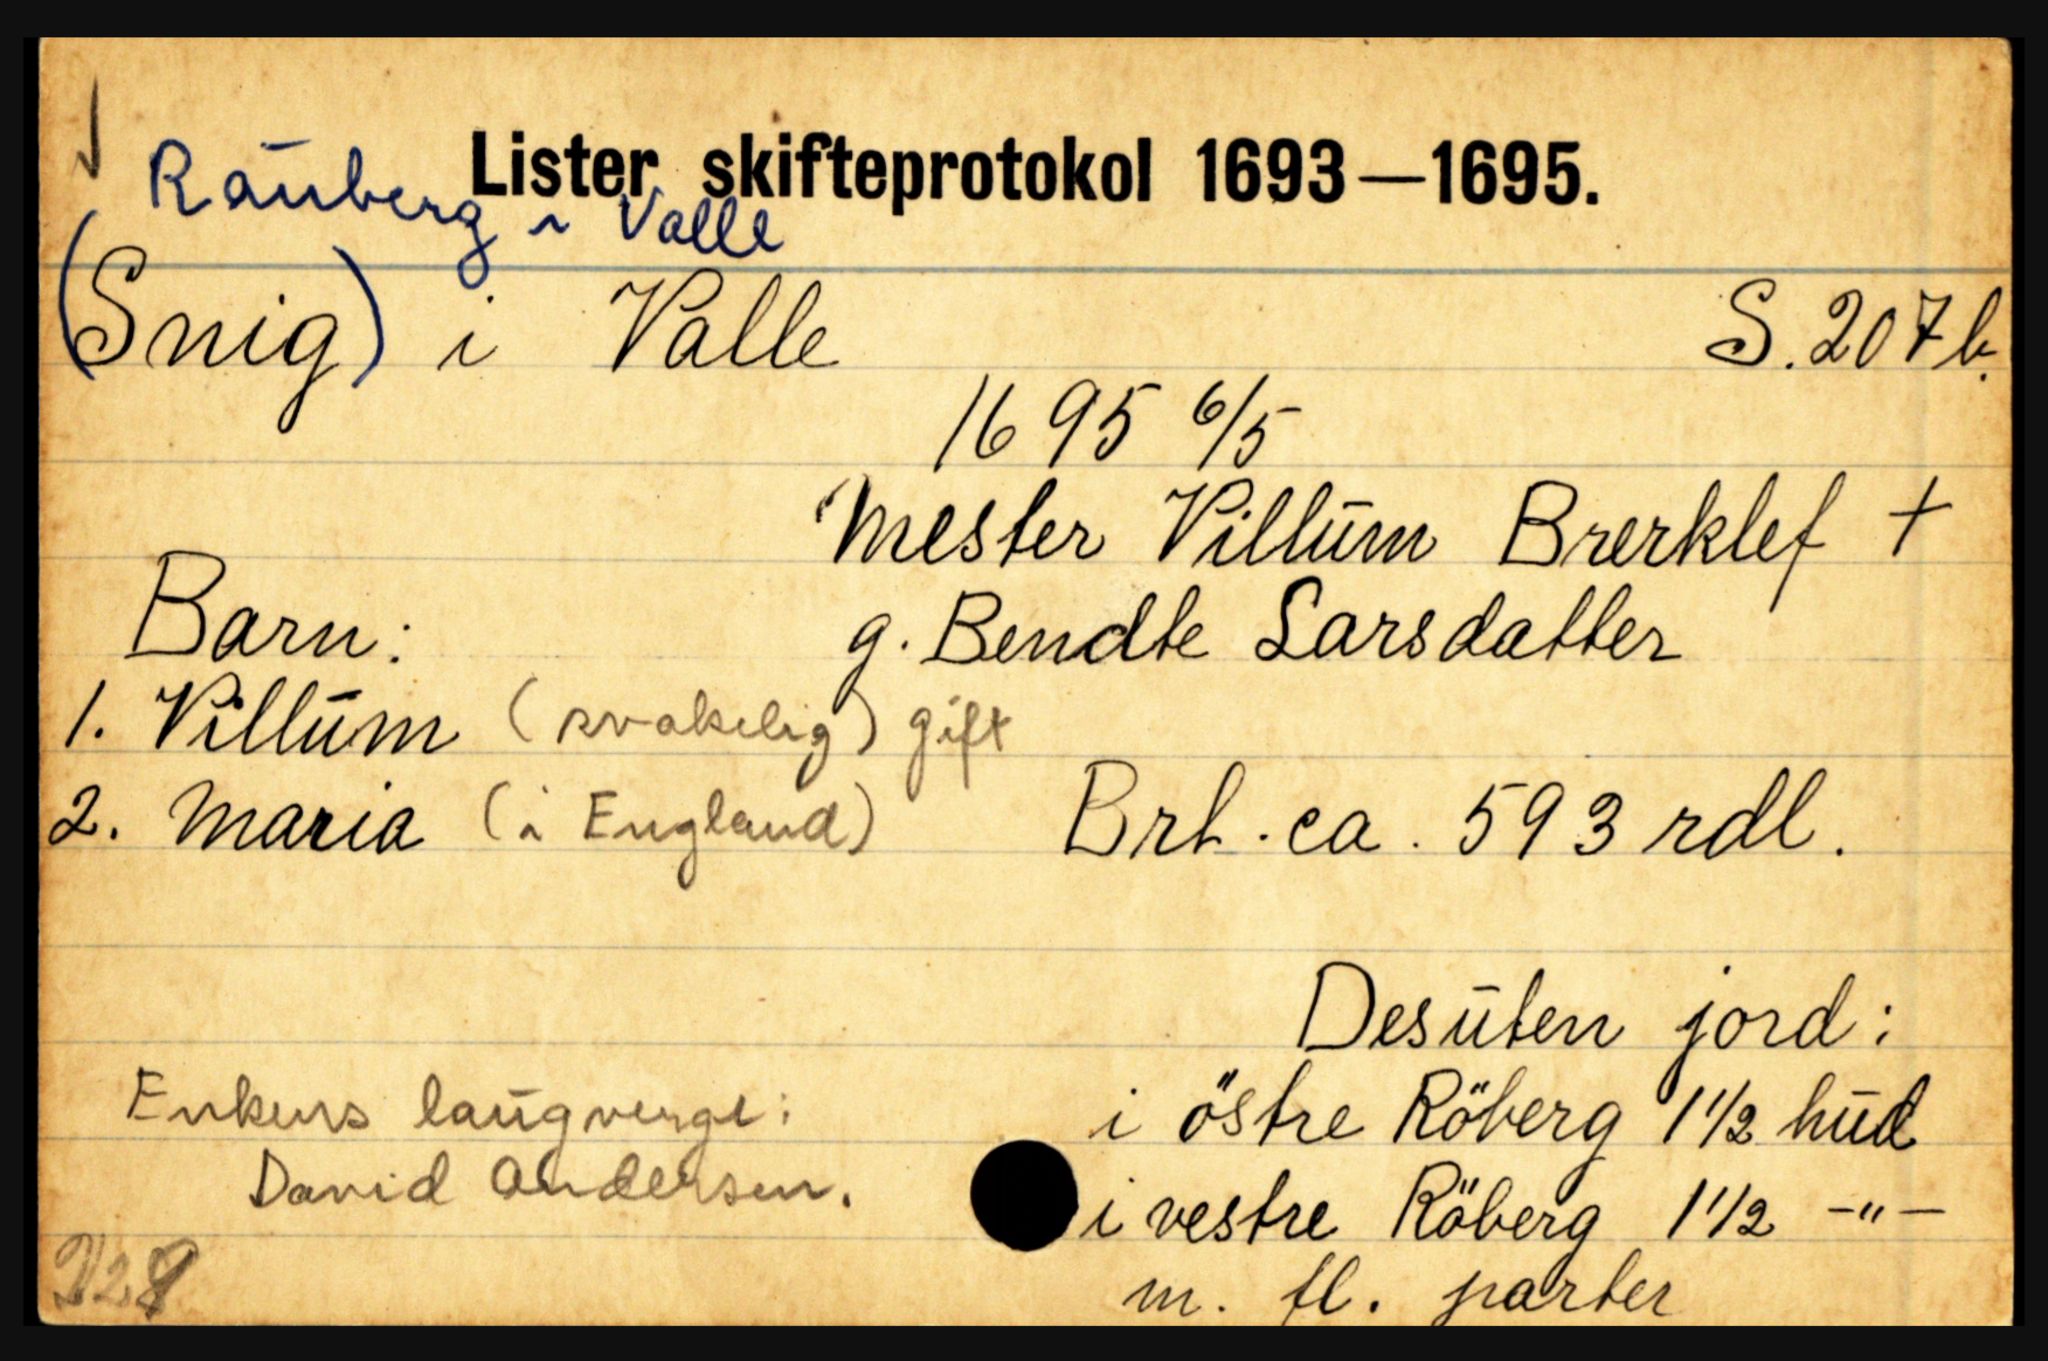 Lister skifteprotokol 1693—1695.
Rauberg i Valle
(Snig) i Valle S. 207 b.
1695 6/5
Mester Villum Brerklef +
Barn: g. Bendte Larsdatter
1. Villum (svakelig) gift
2. Maria (i England) Brt. ca. 593 rdl.
Desuten jord:
Enkens laugverge: i östre Röberg 1 1/2 hud
David Andersen. i vestre Röberg 1 1/2 -"-
m. fl. parter